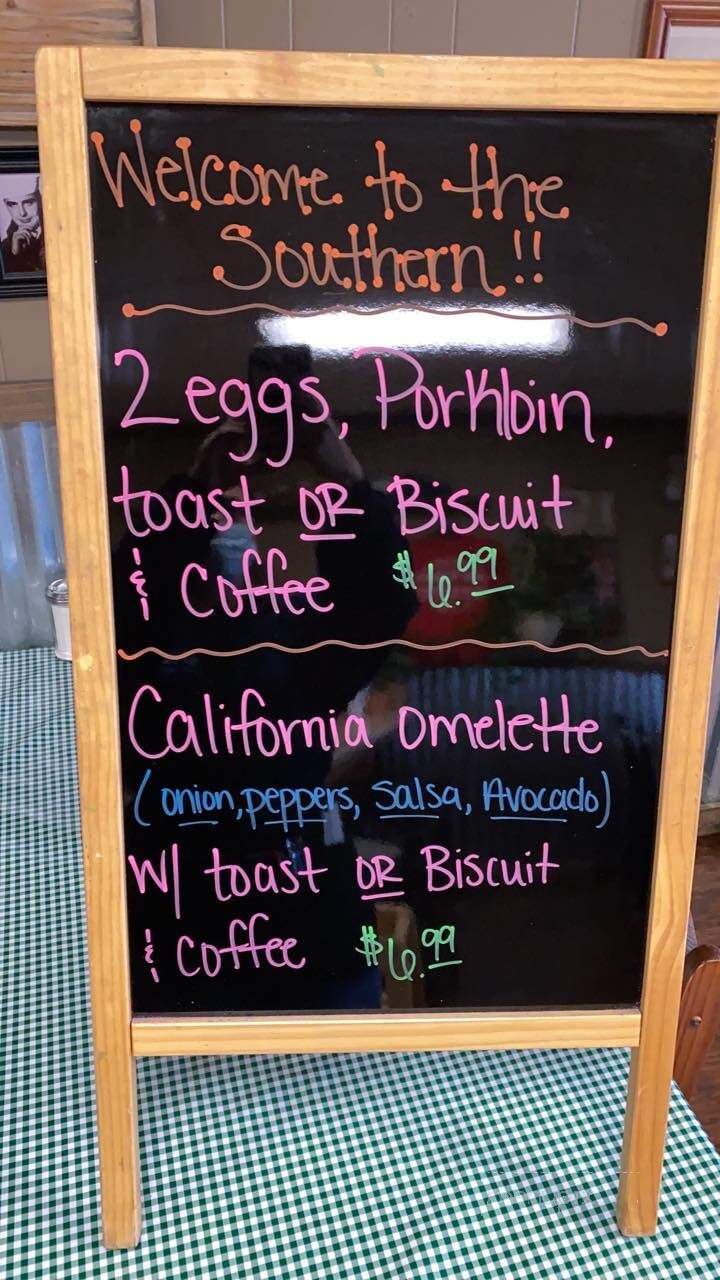 Welcome to the
Southern!!
2 eggs, Porkloin,
toast OR Biscuit
& Coffee $6.99
California Omelette
(onion, peppers, Salsa, Avocado)
W/ toast OR Biscuit
& Coffee $6.99